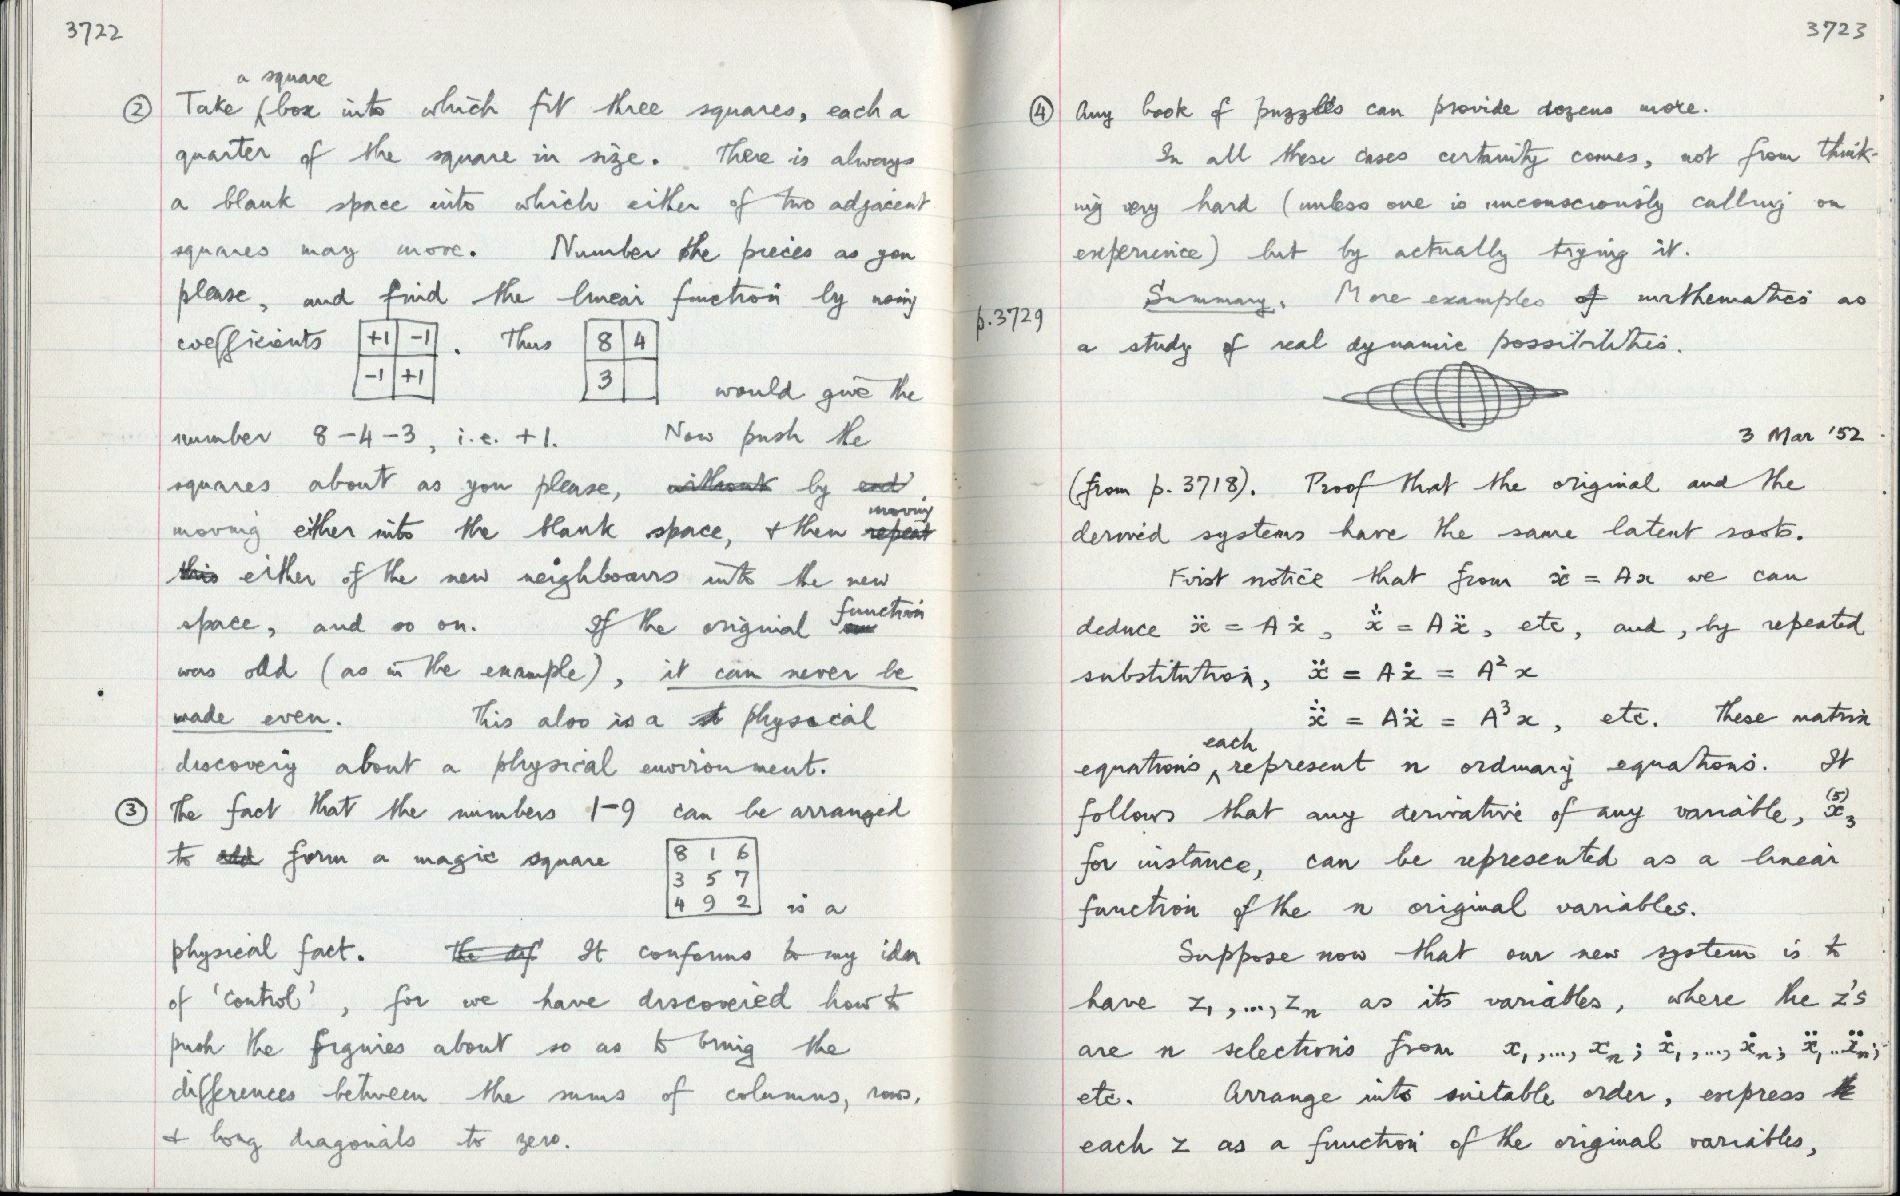 3722
a square
② Take box into which fit three squares, each a
quarter of the square in size. There is always
a blank space into which either of two adjacent
squares may move. Number the pieces as you
please, and find the linear function by using
coefficients +1 -1 . Thus 8 4
-1 +1 3
would give the
number 8-4-3, i.e. +1. Now push the
squares about as you please, without by and
moving
moving either into the blank space, + then repeat
this either of the new neighbours into the new
function
space, and so on. If the original
was odd (as in the example), it can never be
made even. This also is a st physical
discovery about a physical environment.
③ The fact that the numbers 1-9 can be arranged
to add form a magic square 8 1 6
3 5 7
4 9 2 is a
physical fact. The def It conforms to my idea
of 'control', for we have discovered how to
push the figures about so as to bring the
differences between the sums of columns, rows,
+ long diagonals to zero.
3723
④ Any book of puzzles can provide dozens more.
In all these cases certainity comes, not from think-
ing very hard (unless one is unconsciously calling on
experience) but by actually trying it.
Summary. More examples of mathematics as
p.3729
a study of real dynamic possibilities.
3 Mar '52
(from p. 3718). Proof that the original and the
derived systems have the same latent roots.
First notice that from ẋ = Ax we can
deduce ẍ = Aẋ, x⃛ = Aẍ, etc, and, by repeated
substitution, ẍ = Aẋ = A²x
x⃛ = Aẍ = A³x, etc. These matrix
each
equations ‸ represent n ordinary equations. It
follows that any derivative of any variable, x₃⁽⁵⁾
for instance, can be represented as a linear
function of the n original variables.
Suppose now that our new system is to
have z₁,...,zₙ as its variables, where the z's
are n selections from x₁,...,xₙ; ẋ₁,...,ẋₙ; ẍ₁...ẍₙ;
etc. Arrange into suitable order, express
each z as a function of the original variables,